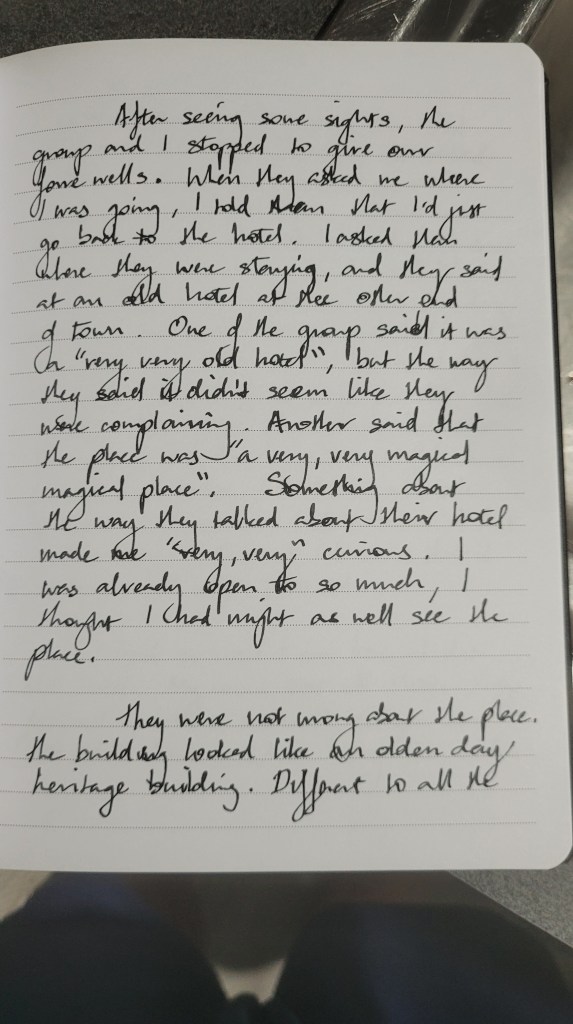 After seeing some sights, the
group and I stopped to give our
fare wells. When they asked me where
I was going, I told them that I'd just
go back to the hotel. I asked them
where they were staying, and they said
at an old hotel at the other end
of town. One of the group said it was
a "very very old hotel", but the way
they said it didn't seem like they
were complaining. Another said that
the place was "a very, very magical
magical place". Something about
the way they talked about their hotel
made me "very, very" curious. I
was already open to so much, I
thought I had might as well see the
place.
They were not wrong about the place.
The building looked like an olden day
heritage building. Different to all the